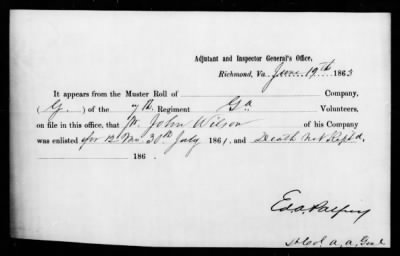 Adjutant and Inspector General's Office,
Richmond, Va. June 19th 1863
It appears from the Muster Roll of Company,
(G.) of the 7th Regiment Ga Volunteers,
on file in this office, that John Wilson of his Company
was enlisted for 12 Mo. 30th July 1861, and Death not Rept'd.
186 .
Ed. A. Palfrey
Lt Col a, a, Genl